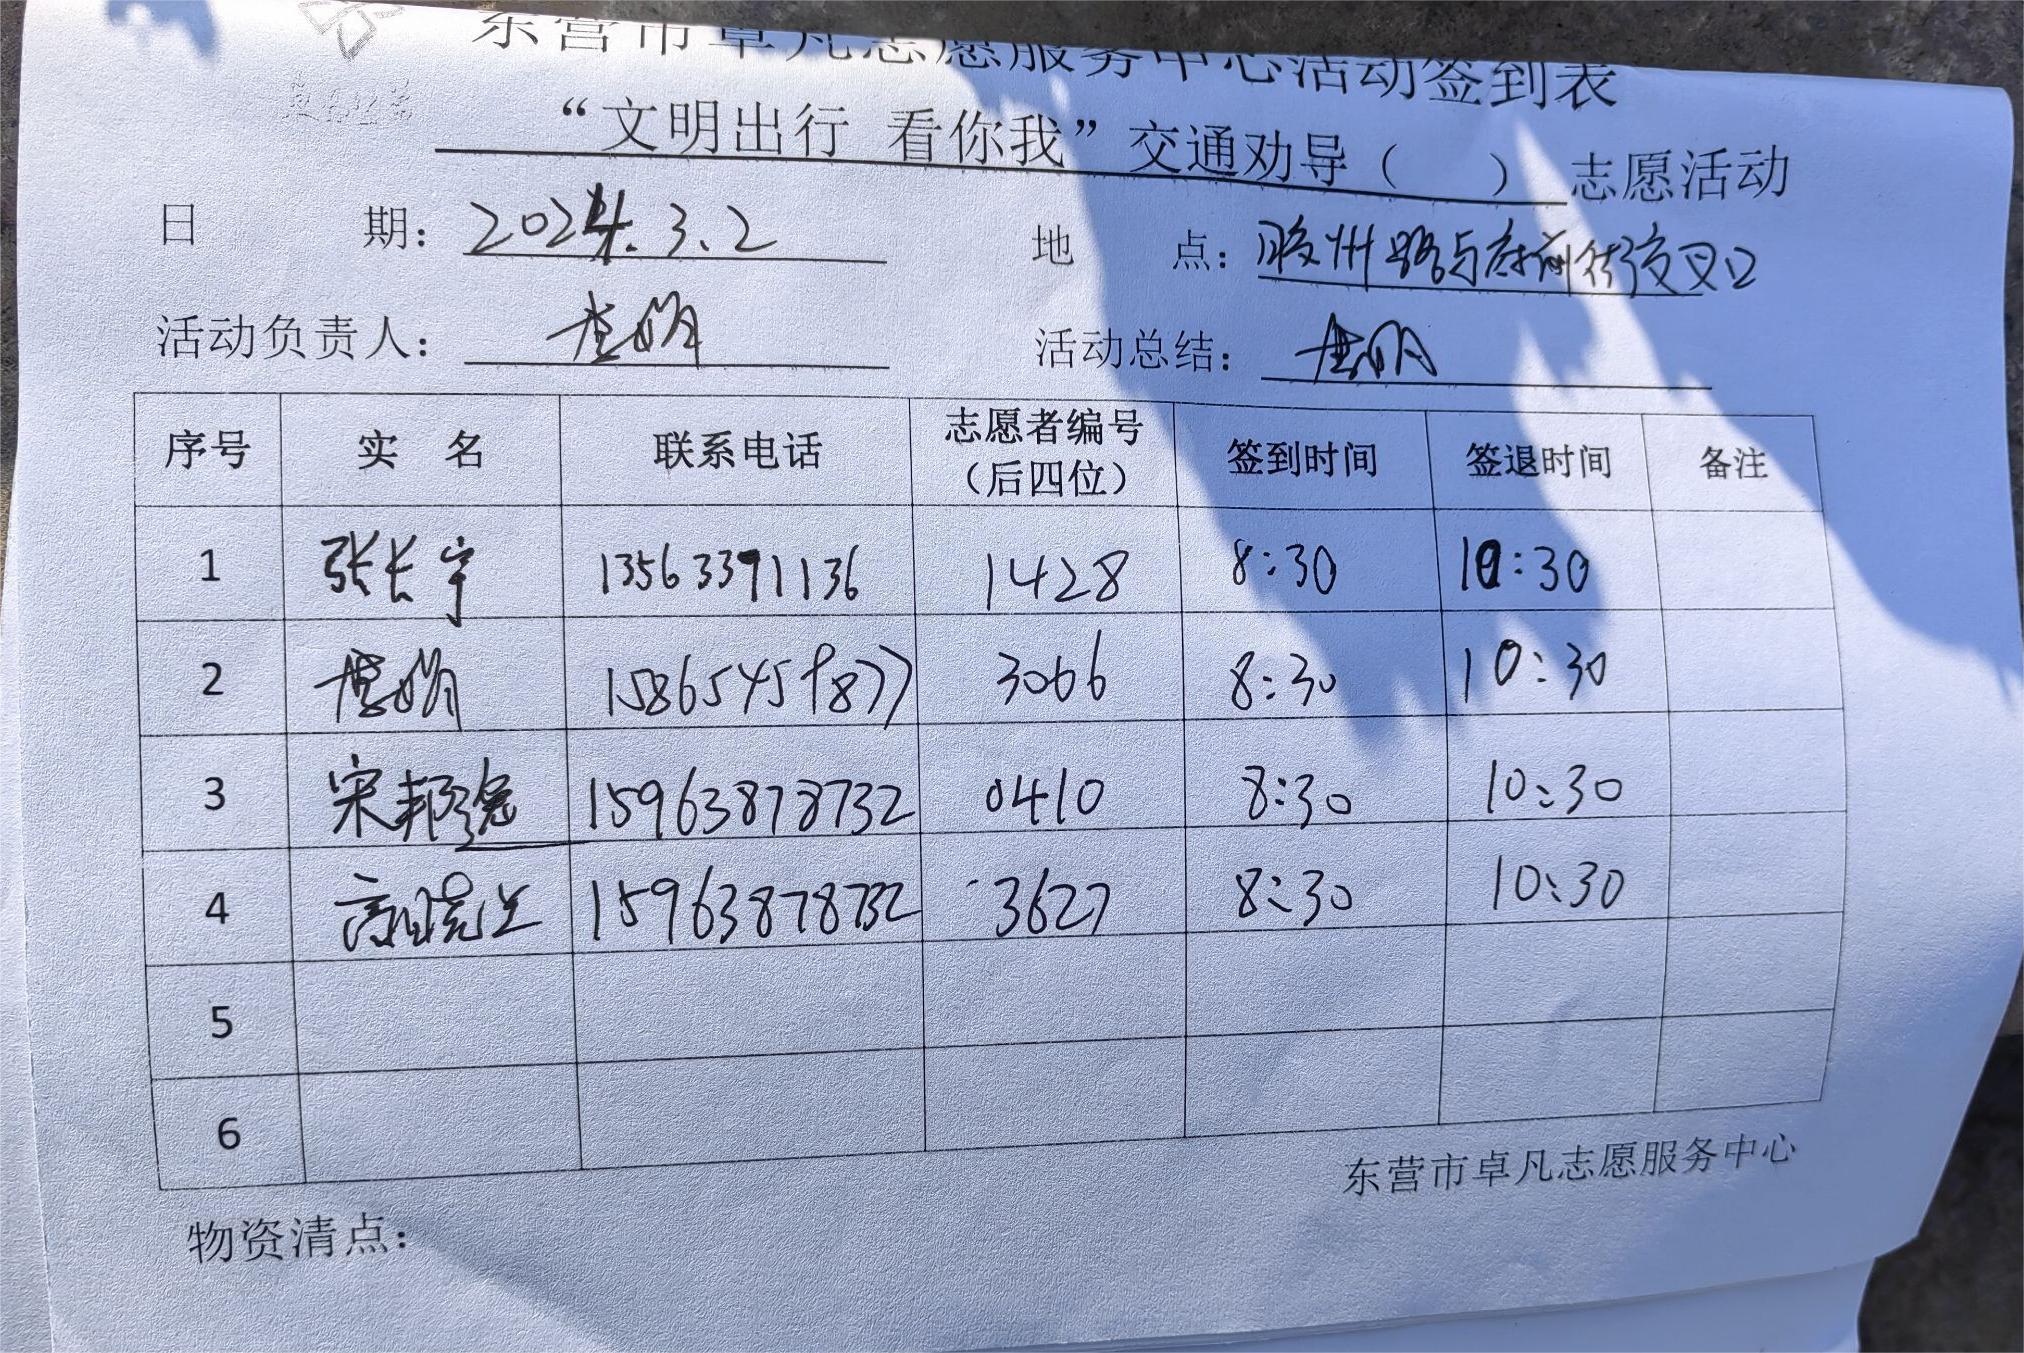 东营市卓凡志愿服务中心活动签到表
“文明出行 看你我”交通劝导（ ）志愿活动
日 期：2024.3.2 地 点：胶州路与府前街交叉口
活动负责人： 活动总结：
序号 实 名 联系电话 志愿者编号（后四位） 签到时间 签退时间 备注
1 张长宇 13563391136 1428 8:30 10:30
2 15865459877 3066 8:30 10:30
3 宋邦强 15963878732 0410 8:30 10:30
4 高 15963878732 3627 8:30 10:30
5
6
东营市卓凡志愿服务中心
物资清点：